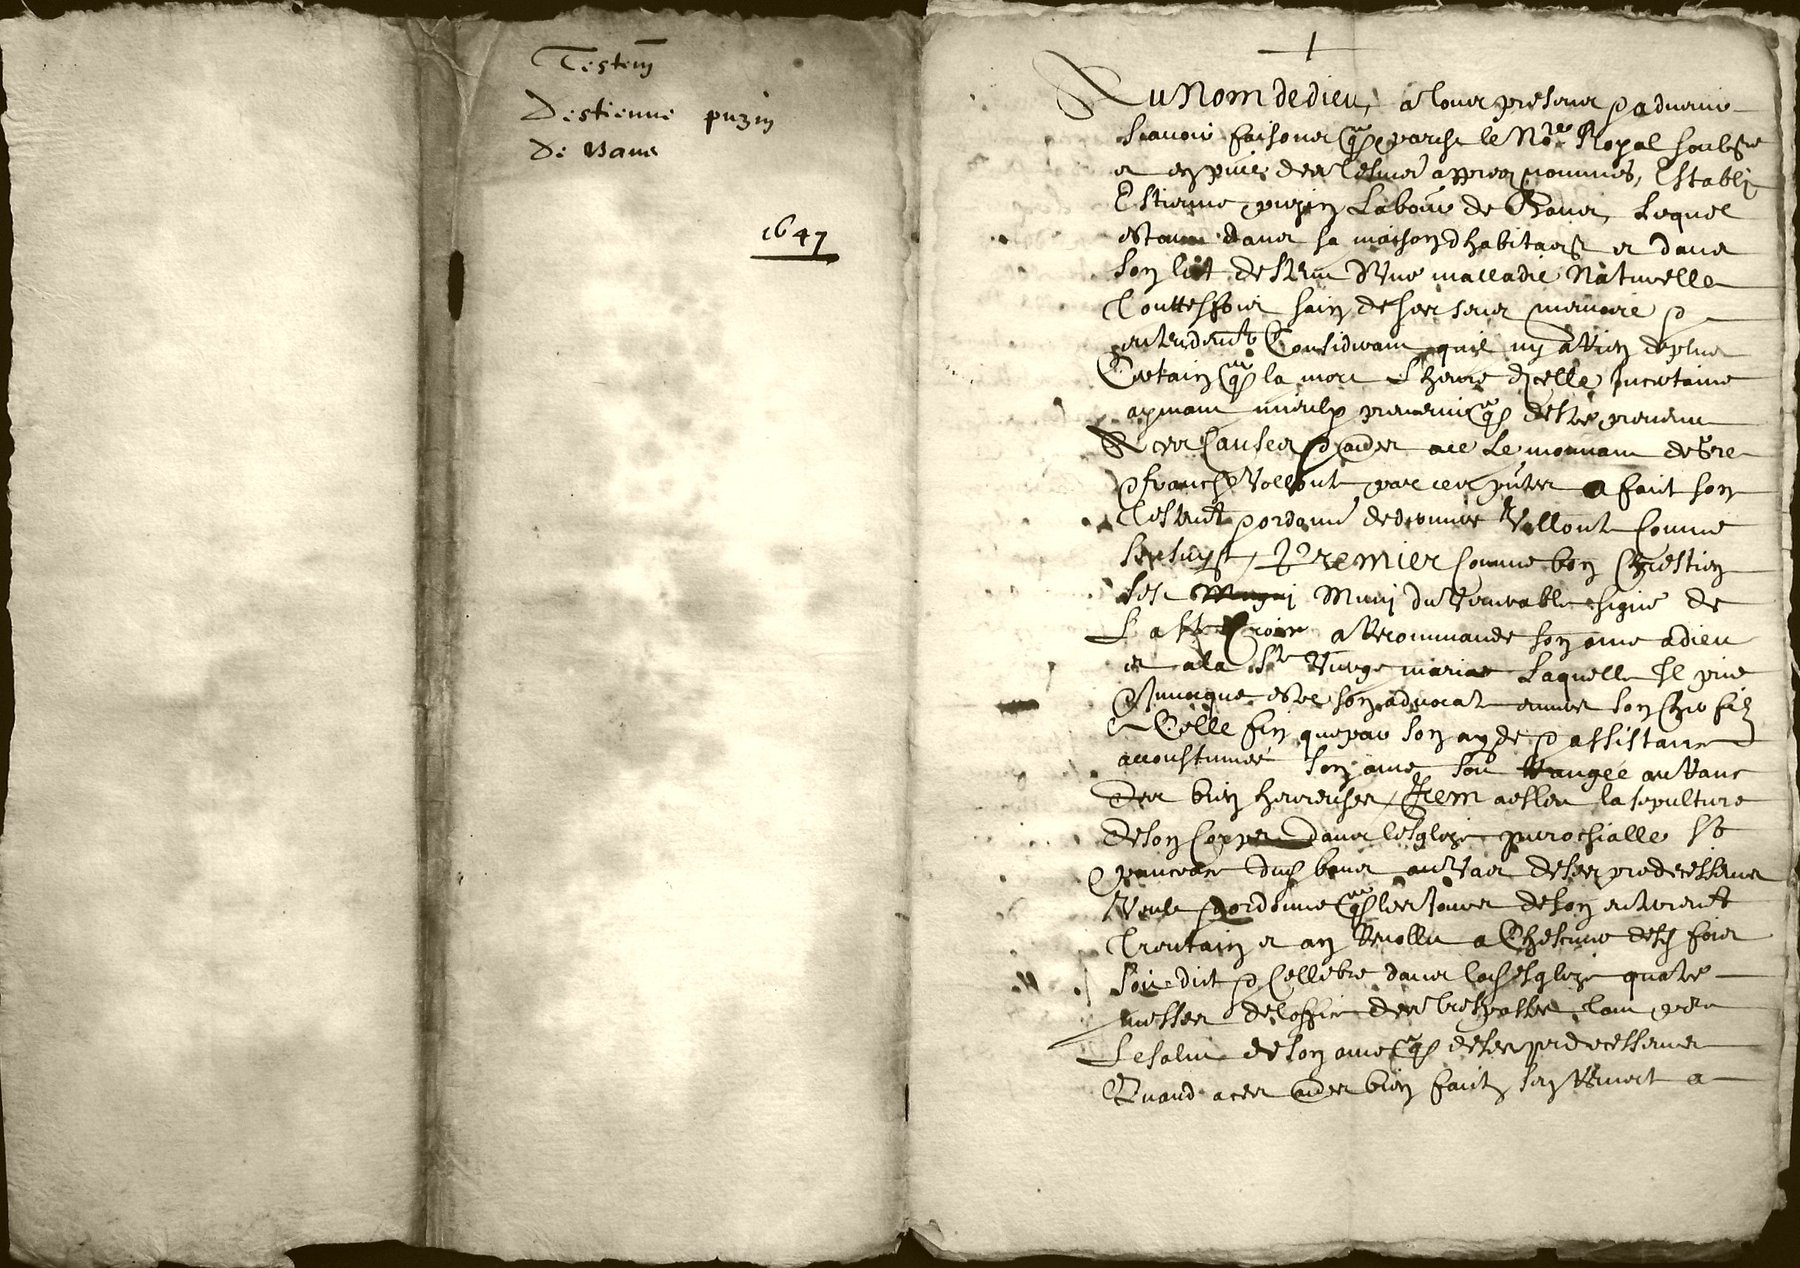 Testem
Destienne puzin
de bans
1647
Au Nom de dieu, a tous presens & advenir
scavoir faisons que pardt le Nore Royal soubsne
et en pnce des tesmos appres nommes, Establi
Estienne puzin Labour de Bans, Lequel
estant dans sa maison dhabitaon et dans
son lict destenu dune malladie Naturelle
Touttesfois sain de ses sens memoire &
entendemt Considerant quil ny a rien de plus
Certain que la mort Lheure dicelle Incertaine
aymant mieulx prevenir que destre prevenu
A ces Causes & aultres ace Le mouvant de Gre
& franche Vollonte par ces pntes a faict son
Testemt & ordonne de derniere Vollonte Comme
sensuyt, Premier Comme bon Chrestien
sest Muni du Venerable signe de
La ste Croix a recommande son ame a dieu
et a la Ste Vierge marie Laquelle Il prie
& Invoque estre son advocat envers son Cher filz
a Celle fin que par son ayde & assistance
accoustumee son ame soit rangee au rang
des bien heureuses, Item a esleu la sepulture
de son Corps dans lesglize parrochialle St
pancrace dud bans au vas de ses predecesseurs
Veult & ordonne que les Jours de son enterremt
Trentain et an revollu a Chescune desd fois
soit dict & Cellebre dans lad esglize quatre
messes de loffice des trespasses tant pour
Le salut de son ame que de ses predecesseurs
Quand a ces aultres bien faictz sen remet a